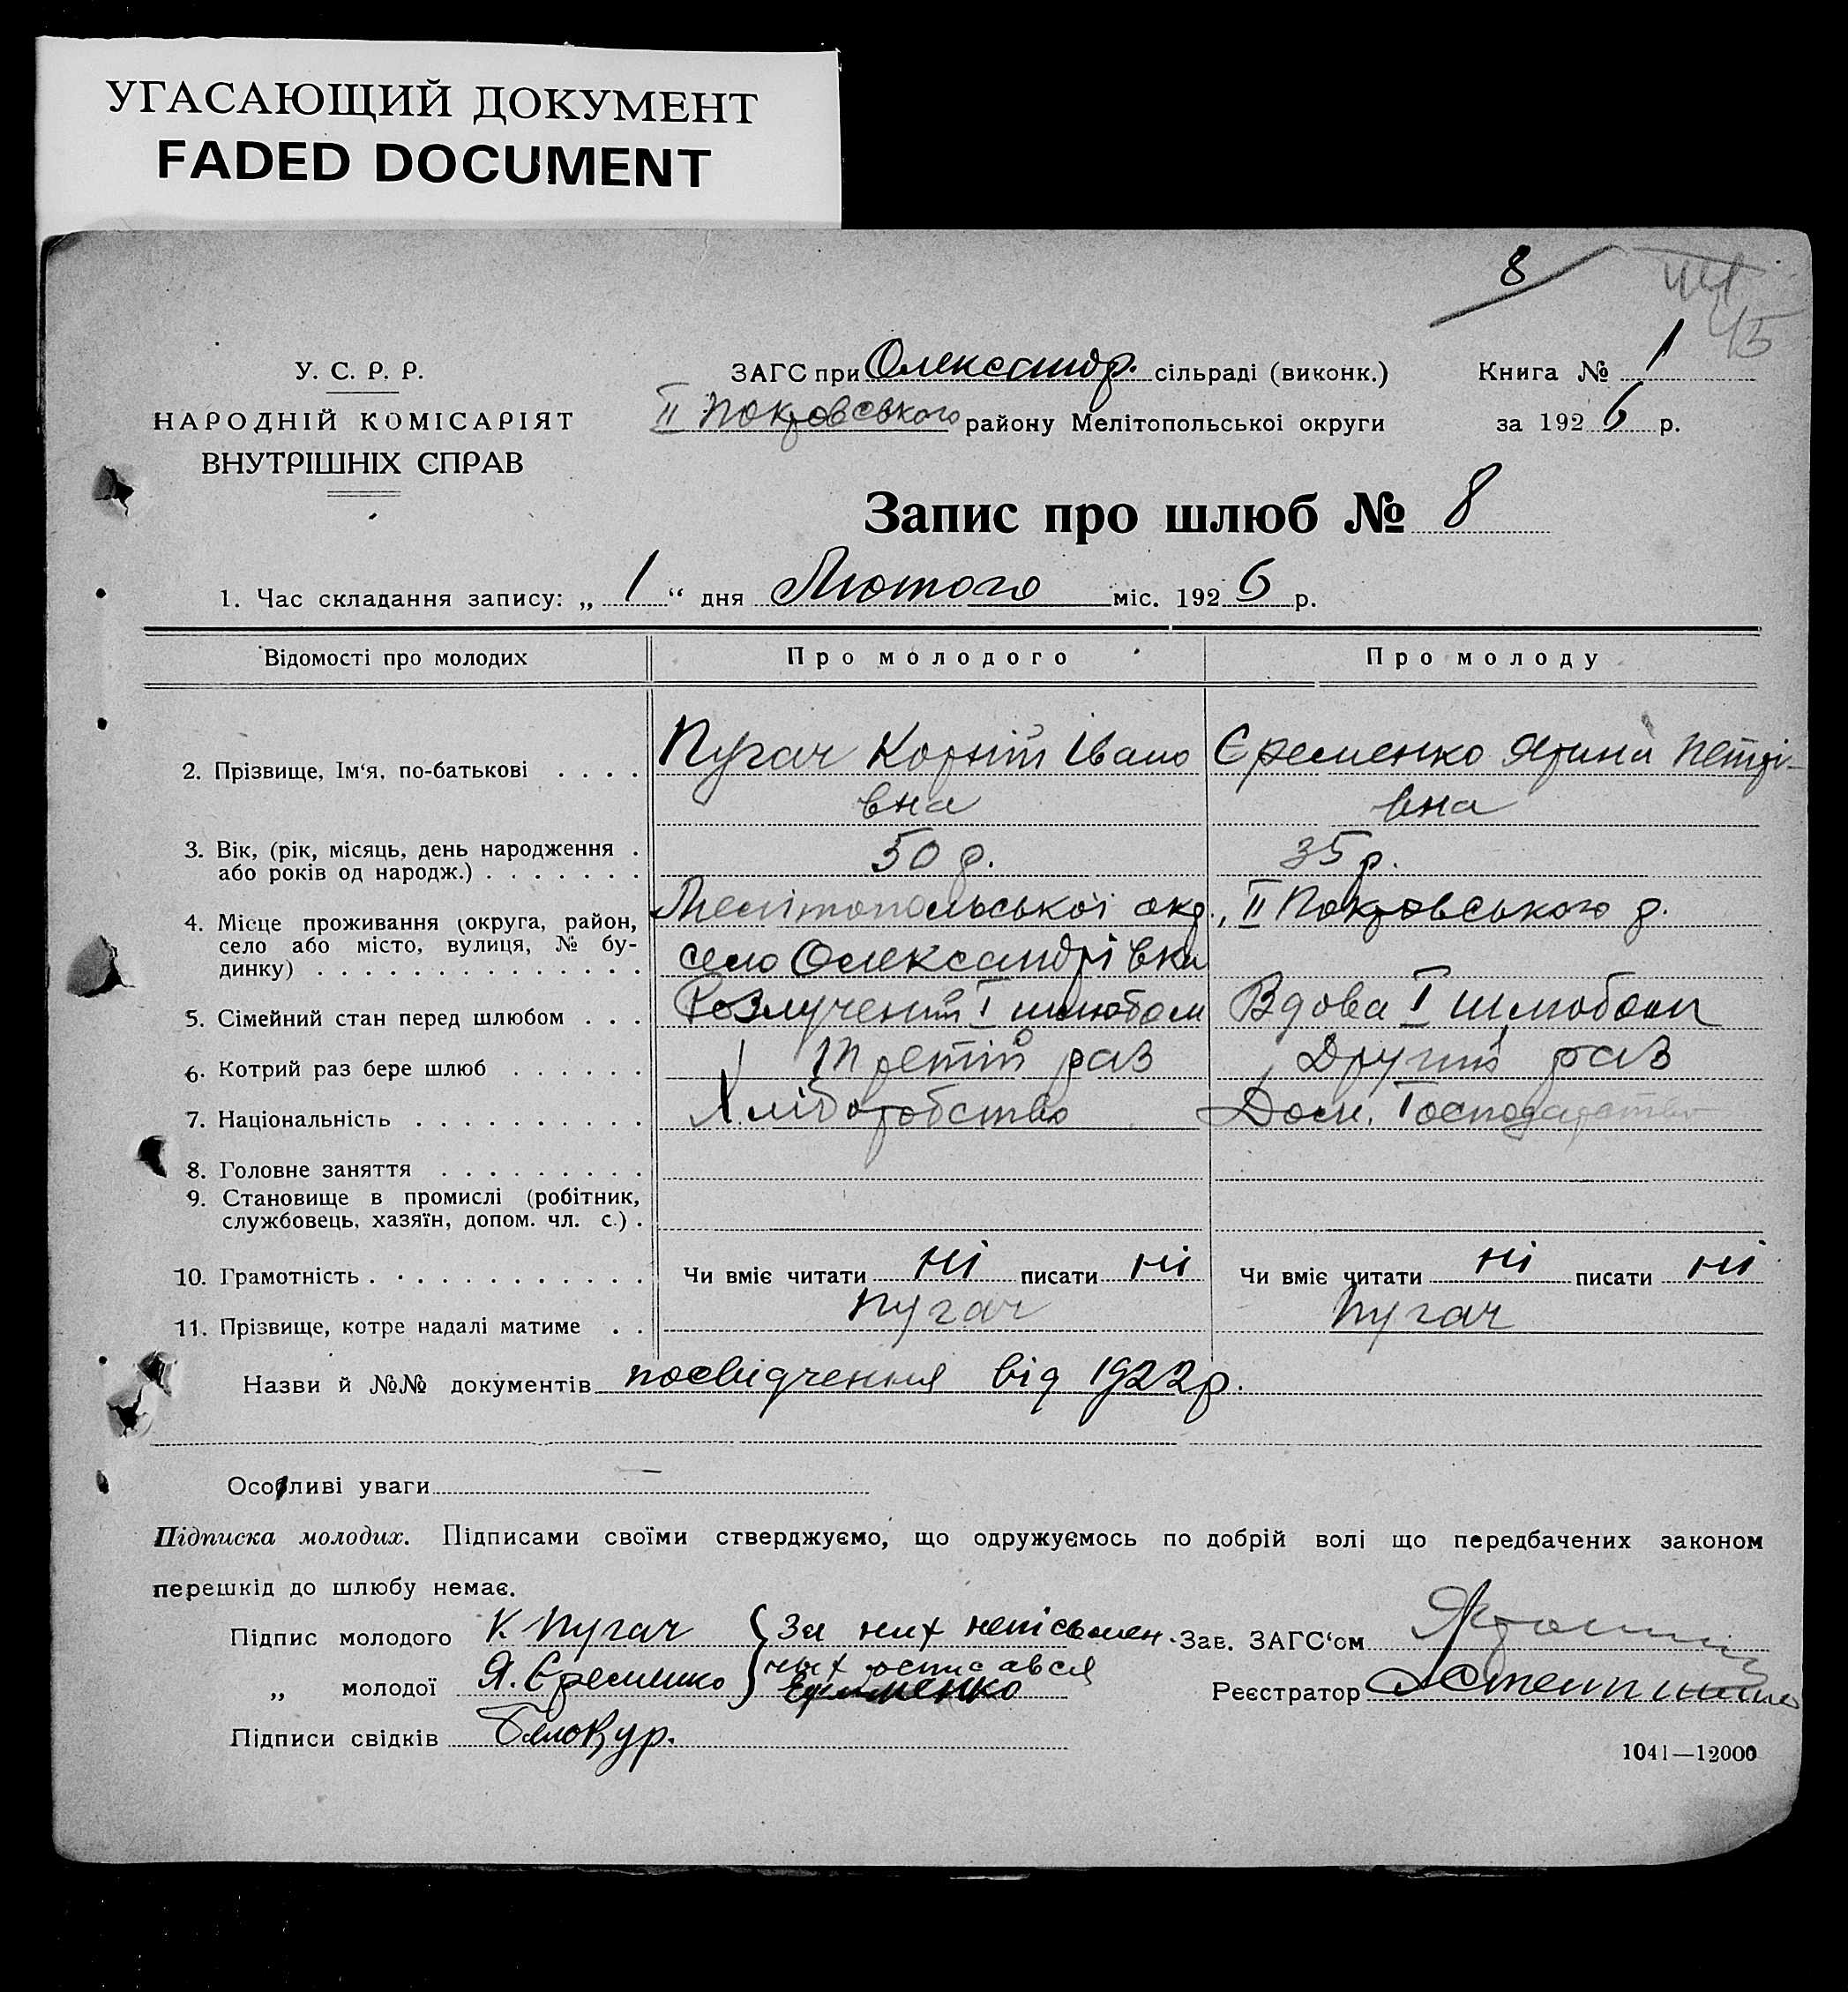 УГАСАЮЩИЙ ДОКУМЕНТ
FADED DOCUMENT
8
45
У. С. Р. Р.
НАРОДНІЙ КОМІСАРІЯТ
ВНУТРІШНІХ СПРАВ
ЗАГС при Олександр. сільраді (виконк.)
II Покровського району Мелітопольської округи
Книга № 1
за 1926 р.
Запис про шлюб № 8
1. Час складання запису: „ 1 “ дня Лютого міс. 1926 р.
Відомості про молодих Про молодого Про молоду
2. Прізвище, Ім‘я, по-батькові . . . . Пугач Корній Івано Єременко Ярина Петрі-
вна вна
3. Вік, (рік, місяць, день народження .
або років од народж.) . . . . . . . 50 р. 35 р.
4. Місце проживання (округа, район,
село або місто, вулиця, № бу-
динку) . . . . . . . . . . . . . .
Мелітопольської окр., II Покровського р.
село Олександрівка
5. Сімейний стан перед шлюбом . . . Розлучений I шлюбом Вдова I шлюбом
6. Котрий раз бере шлюб . . . . . . Третій раз Другий раз
7. Національність . . . . . . . . . . Хліборобство Дом. Господарство
8. Головне заняття . . . . . . . . .
9. Становище в промислі (робітник,
службовець, хазяїн, допом. чл. с.) .
10. Грамотність . . . . . . . . . . . . Чи вміє читати ні писати ні Чи вміє читати ні писати ні
11. Прізвище, котре надалі матиме . . Пугач Пугач
Назви й №№ документів посвідчення від 1922 р.
Особливі уваги —
Підписка молодих. Підписами своїми стверджуємо, що одружуємось по добрій волі що передбачених законом
перешкід до шлюбу немає.
Підпис молодого К Пугач За них непісьмен-
„ молодої Я. Єременко них росписався
Ефименко
Підписи свідків Белокур.
Зав. ЗАГС‘ом
Реєстратор
1041—12000